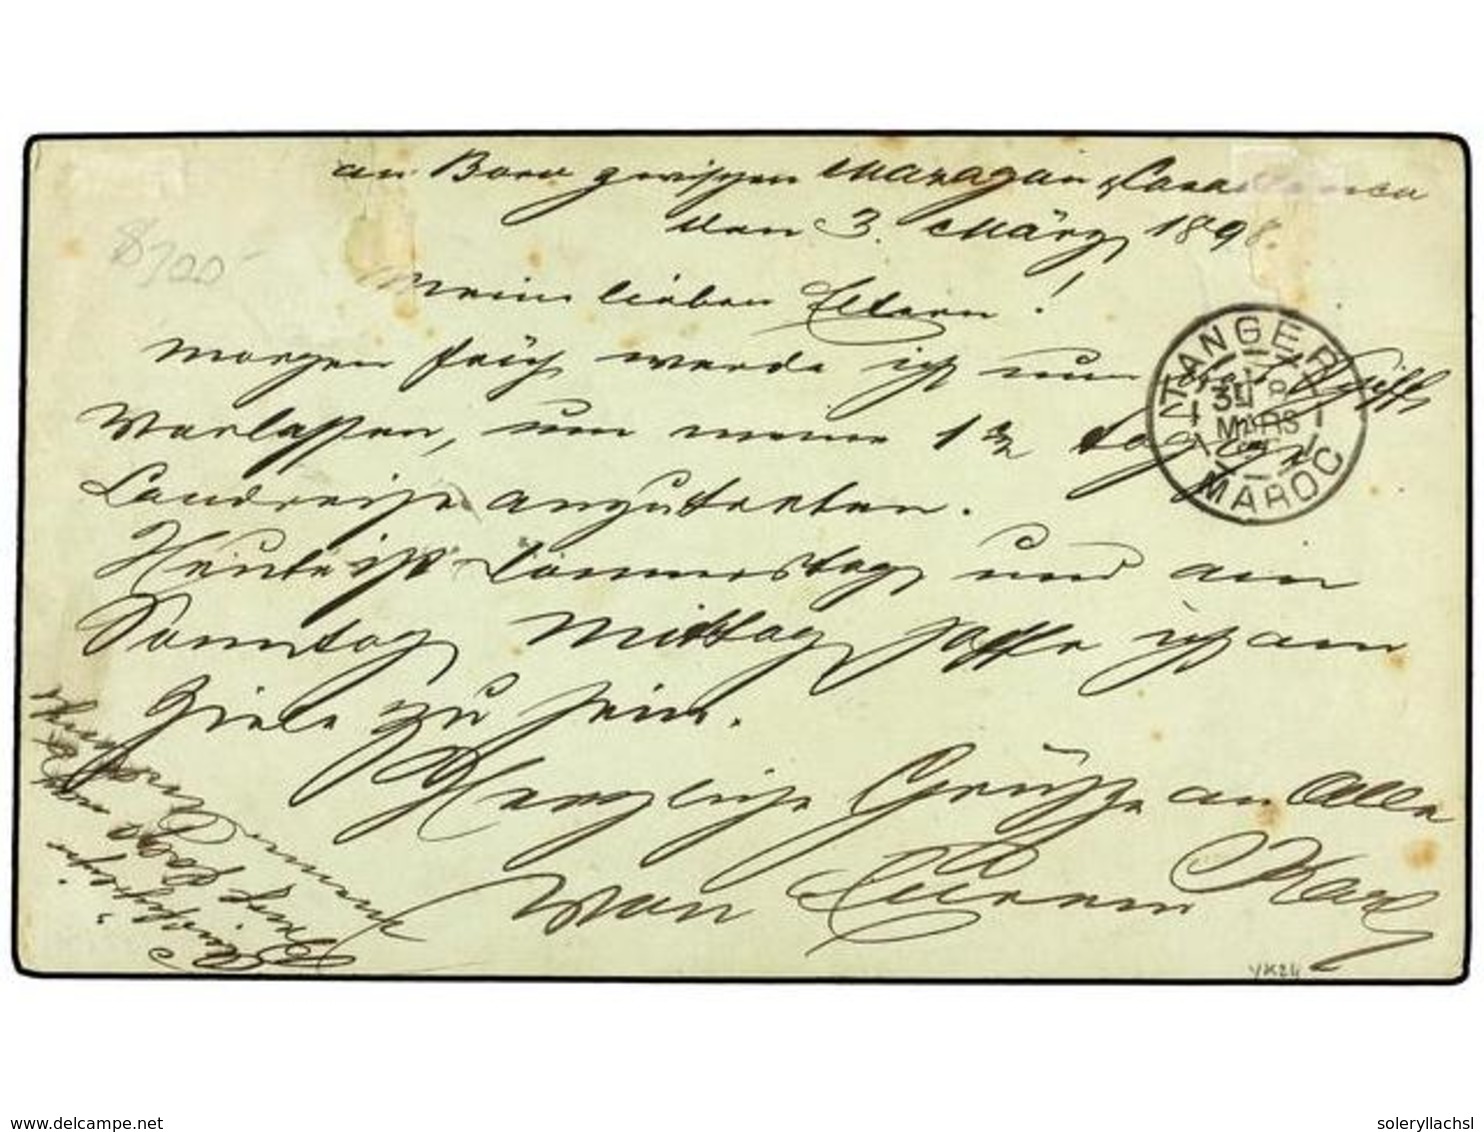 an Bord zwischen Mazagan & Casablanca
den 3. März 1898.
Meine lieben Eltern!
Morgen früh werde ich nun das Schiff
verlassen, um meine 1 1/2 tägige
Landreise anzutreten.
Heute ist Donnerstag und am
Sonntag Mittag hoffe ich am
Ziele zu sein.
Herzliche Grüsse an Alle
von Eurem Karl
TANGER
MARS
MAROC
$ 700
YK24
delcampe.net
soleryllachsl